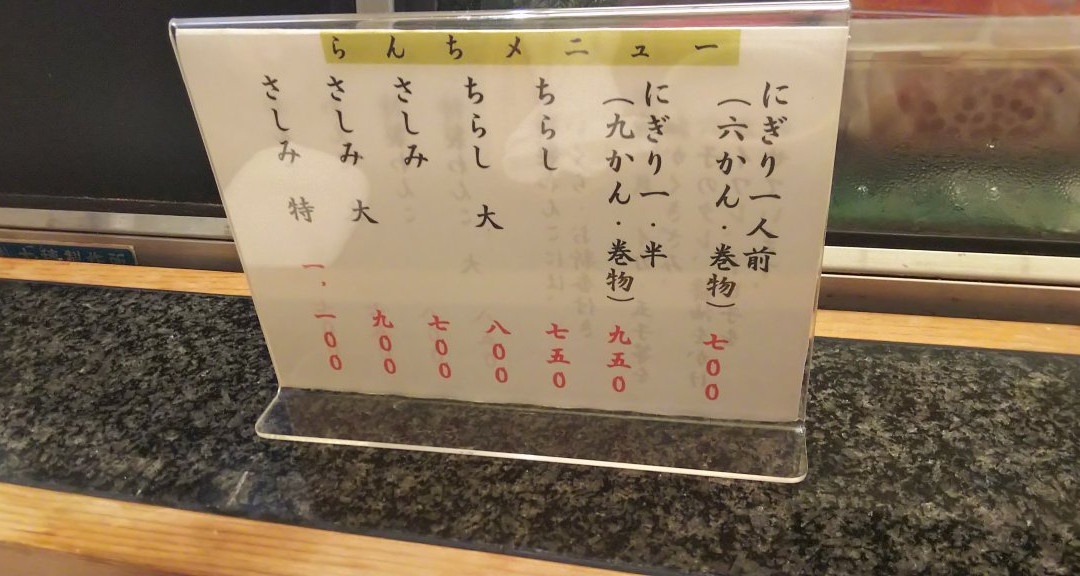 らんちメニュー
にぎり一人前
(六かん・巻物) 七00
にぎり一・半
(九かん・巻物) 九五0
ちらし 七五0
ちらし 大 八00
さしみ 七00
さしみ 大 九00
さしみ 特 一・一00